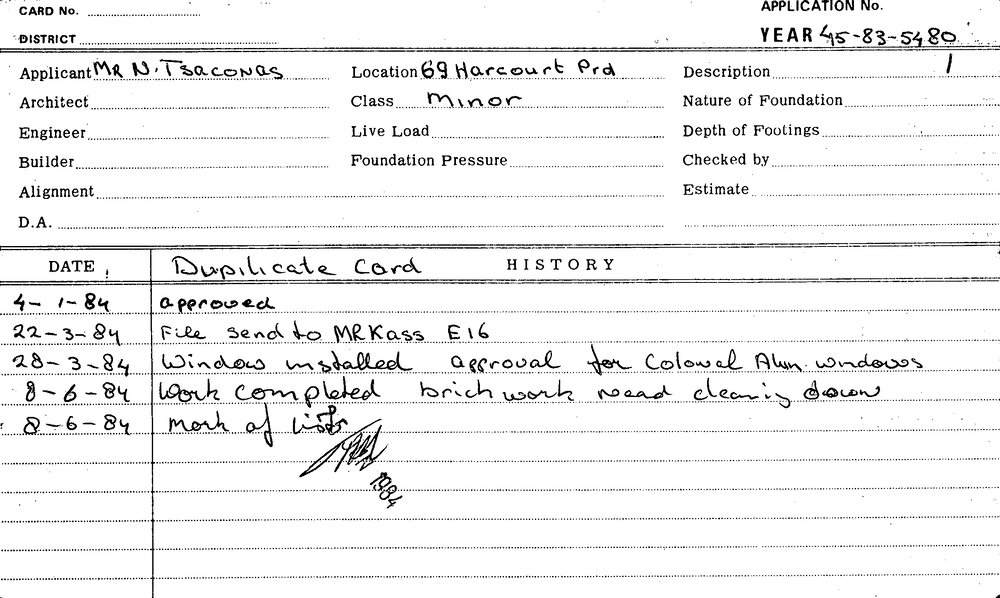 CARD No.
APPLICATION No.
DISTRICT
YEAR 45-83-5480
Applicant MR N. Tsaconas Location 69 Harcourt Prd Description 1
Architect Class minor Nature of Foundation
Engineer Live Load Depth of Footings
Builder Foundation Pressure Checked by
Alignment Estimate
D.A.
DATE Dupilicate Card HISTORY
4-1-84 approved
22-3-84 File send to MR Kass E16
28-3-84 Window installed approval for Colowel Alum. windows
8-6-84 Work completed brichwork nead cleanig down
8-6-84 mork of
1984